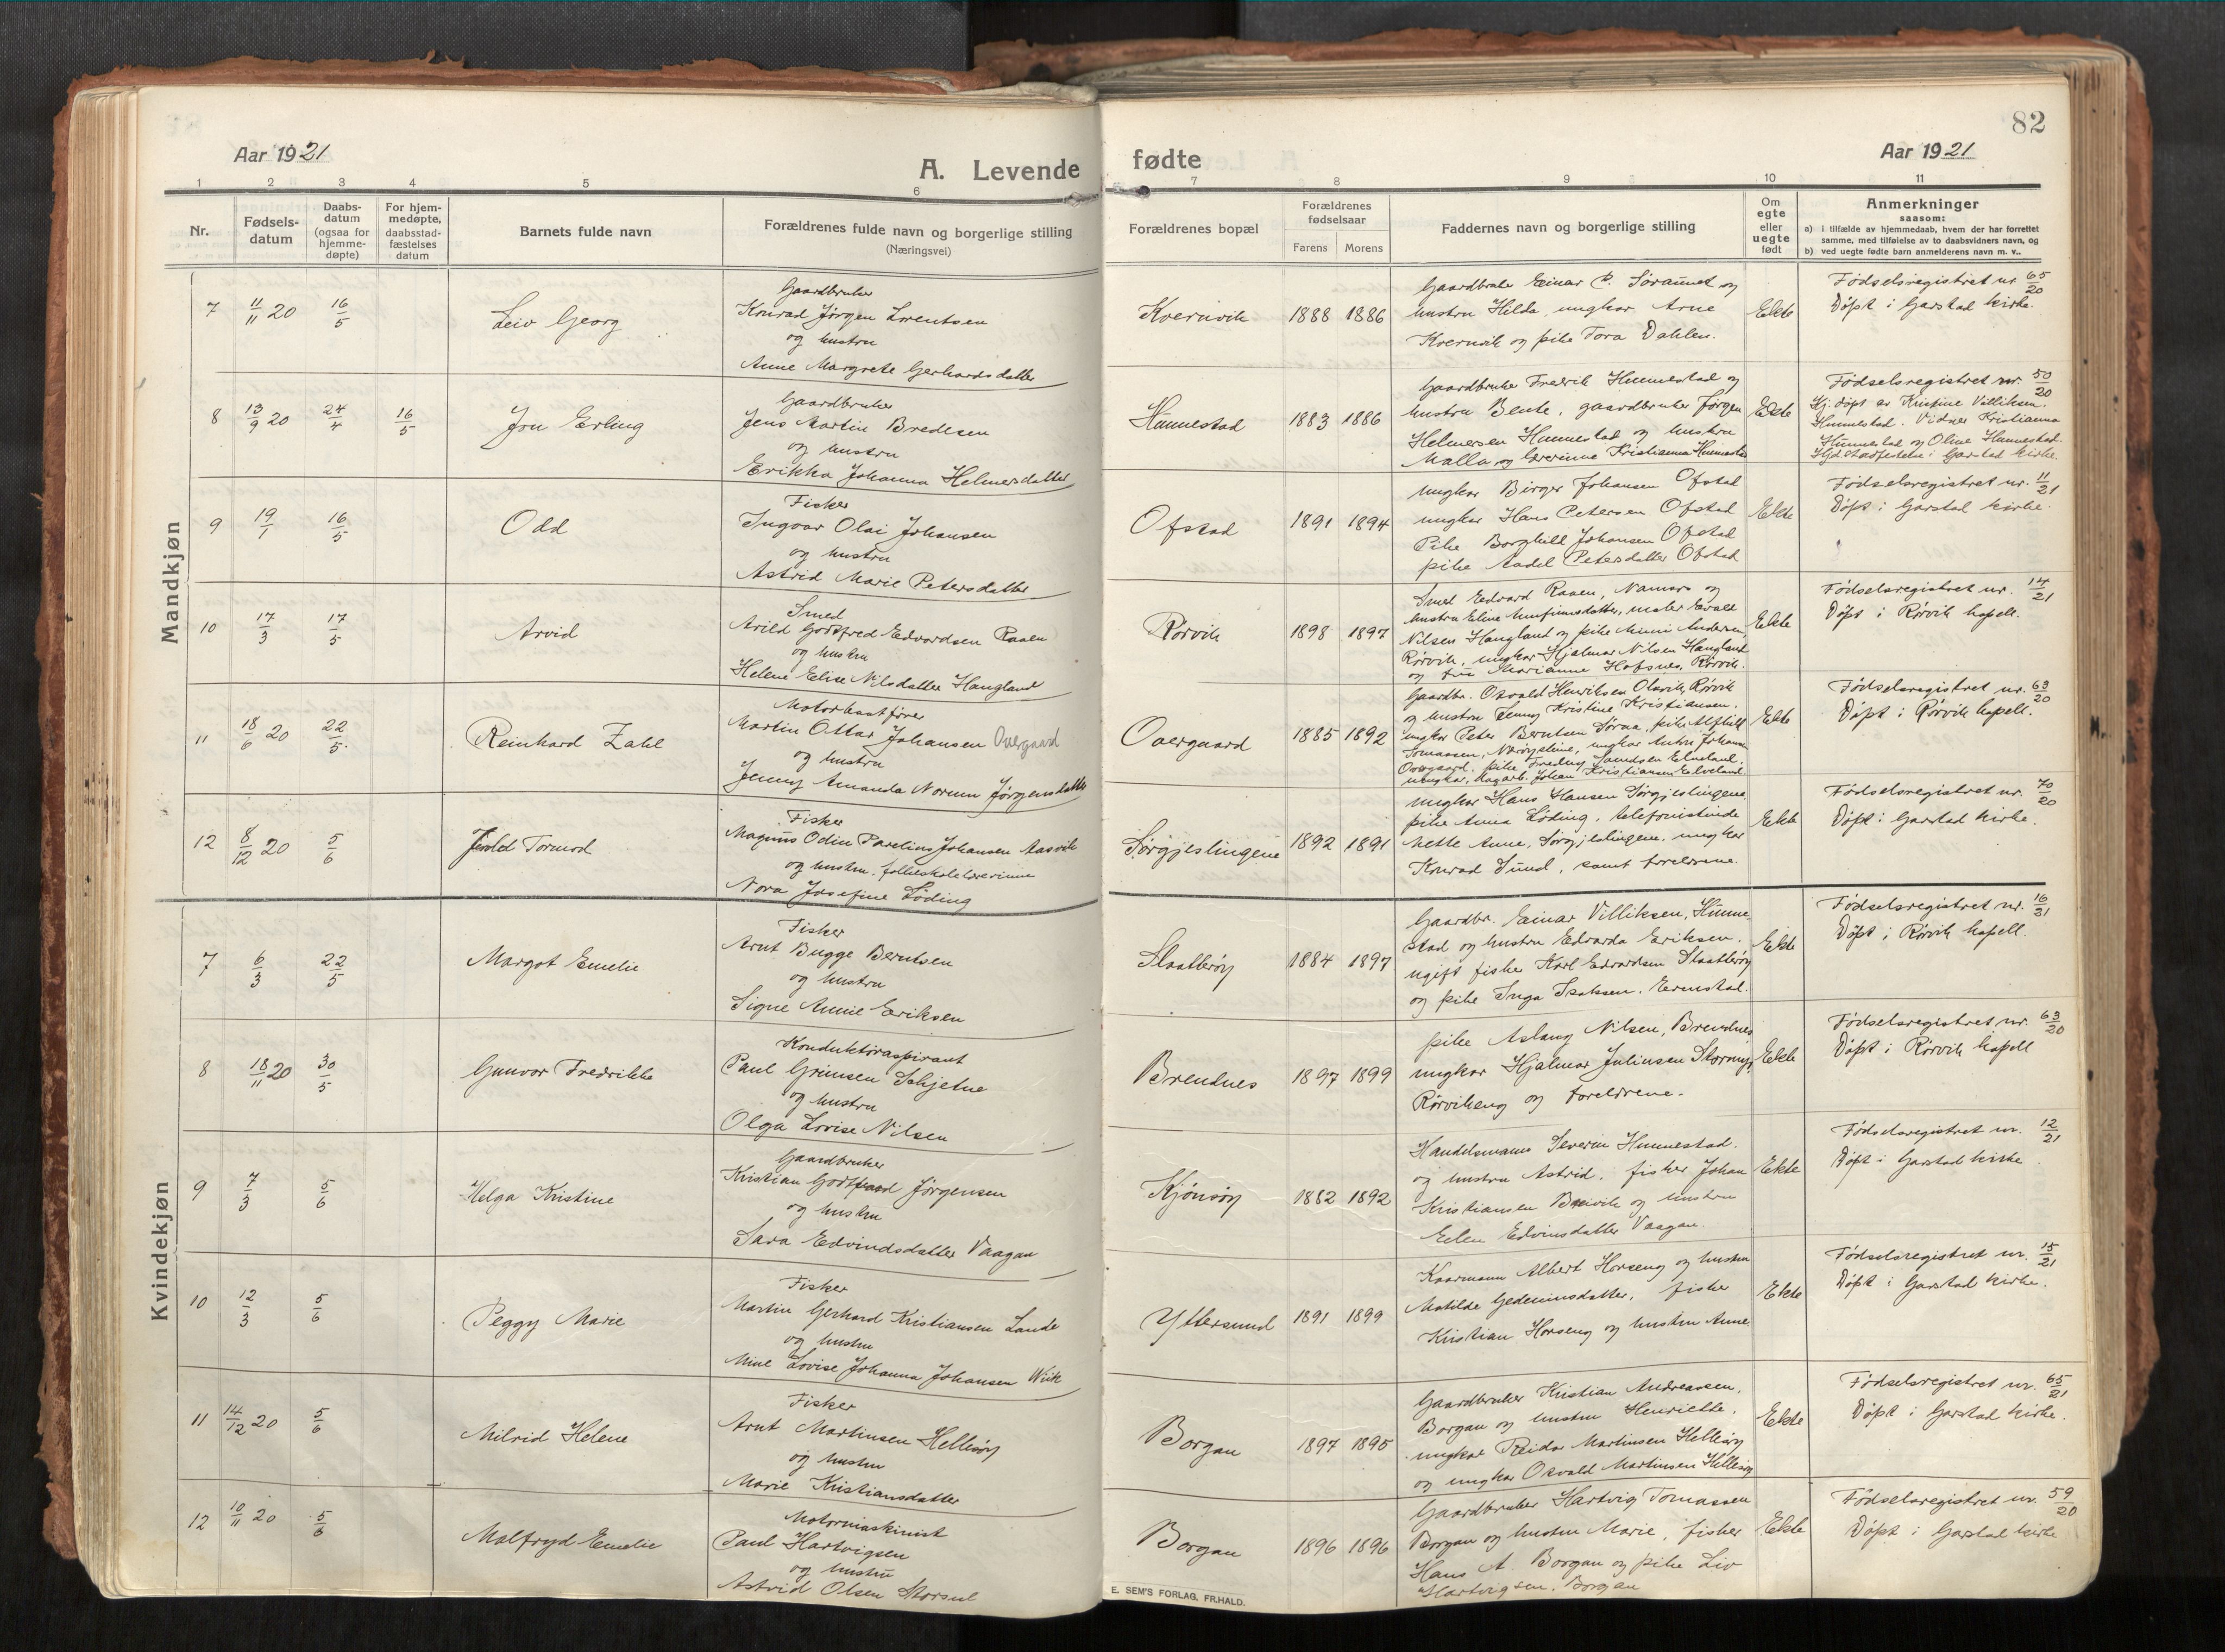 82
Aar 1921
A. Levende
fødte
Aar 1921
1 2 3 4 5 6 7 8 9 10 11
Nr.
Fødsels-
datum
Daabs-
datum
(ogsaa for
hjemme-
døpte)
For hjem-
medøpte,
daabsstad-
fæstelses
datum
Barnets fulde navn
Forældrenes fulde navn og borgerlige stilling
(Næringsvei)
Forældrenes bopæl
Forældrenes
fødselsaar
Farens Morens
Faddernes navn og borgerlige stilling
Om
egte
eller
uegte
født
Anmerkninger
saasom:
a) i tilfælde av hjemmedaab, hvem der har forrettet
samme, med tilføielse av to daabsvidners navn, og
b) ved uegte fødte barn anmelderens navn m. v..
Mandkjøn
7 11/11 20 16/5 Leiv Georg
Gaardbruker
Konrad Jørgen Lorentsen
og hustru
Anne Margrete Gerhardsdatter
Kvernvik 1888 1886
Gaardbruker Einar P. Søraunet og
hustru Hilda, ungkar Arne
Kvernvik og pike Tora Dahlen.
Ekte
Fødselsregistret nr. 65/20
Døpt i Garstad kirke.
8 13/9 20 24/4 16/5 Jon Erling
Gaardbruker
Jens Martin Bredesen
og hustru
Erikka Johanna Helmersdatter
Hunnestad 1883 1886
Gaardbruker Fredrik Hunnestad og
hustru Bente, gaardbruker Jørgen
Helmersen Hunnestad og hustru
Malla og lærerinne Kristianna Hunnestad
Ekte
Fødselsregistret nr. 50/20
Hj. døpt av Kristine Villiksen
Hunnestad. Vidner Kristianna
Hunnestad og Oline Hunnestad.
i Garstad kirke.
9 19/1 16/5 Odd
Fisker
Ingvar Olai Johansen
og hustru
Astrid Marie Petersdatter
Ofstad 1891 1894
ungkar Birger Johansen Ofstad
ungkar Hans Petersen Ofstad
Pike Borghild Johansen Ofstad
pike Aadel Petersdatter Ofstad
Ekte
Fødselsregistret nr. 11/21
Døpt i Garstad kirke.
10 17/3 17/5 Arvid
Smed
Arild Godtfred Edvardsen Raaen
og hustru
Helene Elise Nilsdatter Haugland
Rørvik 1898 1897
Smed Edvard Raaen, Namsos og
hustru Eline Arnfinnsdatter, maler Evald
Nilsen Haugland og pike Mimi Andersen,
Rørvik, ungkar Hjalmar Nilsen Haugland
og fru Marianne Hofsnes, Rørvik.
Ekte
Fødselsregistret nr. 14/21
Døpt i Rørvik kapell.
11 18/6 20 22/5 Reinhard Zahl
Motorbaatfører
Martin Ottar Johansen Overgaard
og hustru
Jenny Amanda Norum Jørgensdatter
Overgaard 1885 1892
Gaardbr. Osvald Henriksen Olavik, Rørvik
og hustru Jenny Kristine Kristiansen.
ungkar Peter Berntsen Søraa, pike Alfhild
Tomassen, ungkar Anton Johansen
Overgaard, pike
ungkar, Johan Kristiansen Elveland.
Ekte
Fødselsregistret nr. 63/20
Døpt i Rørvik kapell.
12 8/12 20 5/6 Jarld Tormod
Fisker
Magnus Odin Parelius Johansen Aasvik
og hustru, folkeskolelærerinne
Nora Josefine Løding
Sørgjeslingene 1892 1891
ungkar Hans Hansen Sørgjeslingene,
pike Anna Løding, telefonistinde
Mette Aune, Sørgjeslingene, ungkar
Konrad Sund, samt foreldrene.
Ekte
Fødselsregistret nr. 70/20
Døpt i Garstad kirke.
Kvindekjøn
7 6/3 22/5 Margot Emelie
Fisker
Arnt Bugge Berntsen
og hustru
Signe Annie Eriksen
Slaatterøy 1884 1897
Gaardbr. Einar Villiksen, Hunne-
stad og hustru Edvarda Eriksen,
ugift fisker Karl Edvardsen Slaatterøy
og pike Inga Isaksen, Evenstad.
Ekte
Fødselsregistret nr. 16/21
Døpt i Rørvik kapell.
8 18/11 20 30/5 Gunvor Fredrikke
Konduktøraspirant
Paul Grimsen Schjetne
og hustru
Olga Lovise Nilsen
Brendnes 1897 1899
pike Aslaug Nilsen, Brendnes
ungkar Hjalmar Juliussen Stormyr,
Rørvikeng og foreldrene.
Ekte
Fødselsregistret nr. 63/20
Døpt i Rørvik kapell
9 7/3 5/6 Helga Kristine
Gaardbruker
Kristian Godtfred Jørgensen
og hustru
Sara Edvindsdatter Vaagan
Kjønsøy 1882 1892
Handelsmann Severin Hunnestad.
og hustru Astrid, fisker Johan
Kristiansen Breivik og hustru
Ellen Edvinsdatter Vaagan.
Ekte
Fødselsregistret nr. 12/21
Døpt i Garstad kirke
10 12/3 5/6 Peggy Marie
Fisker
Martin Gerhard Kristiansen Lande
og hustru
Mine Lovise Johanna Johansen Wiik
Yttersund 1891 1899
Kaarmann Albert Horseng og hustru
Matilde Gedeonsdatter, fisker
Kristian Horseng og hustru Anne.
Ekte
Fødselsregistret nr. 15/21
Døpt i Garstad kirke.
11 14/12 20 5/6 Milrid Helene
Fisker
Arnt Martinsen Hellesøy
og hustru
Marie Kristiansdatter
Borgan 1897 1895
Gaardbruker Kristian Andreassen,
Borgan og hustru Henriette,
ungkar Reidar Martinsen Hellesøy
og ungkar Osvald Martinsen Hellesøy
Ekte
Fødselsregistret nr. 65/21
Døpt i Garstad kirke.
12 10/11 20 5/6 Malfryd Emelie
Motormaskinist
Paul Hartvigsen
og hustru
Astrid Olsen Storsul
Borgan 1896 1896
Gaardbruker Hartvig Tomassen
Borgan og hustru Marie, fisker
Hans A. Borgan og pike Liv
Hartvigsen, Borgan
Ekte
Fødselsregistret nr. 59/20
Døpt i Garstad kirke
E. SEM'S FORLAG, FR.HALD.